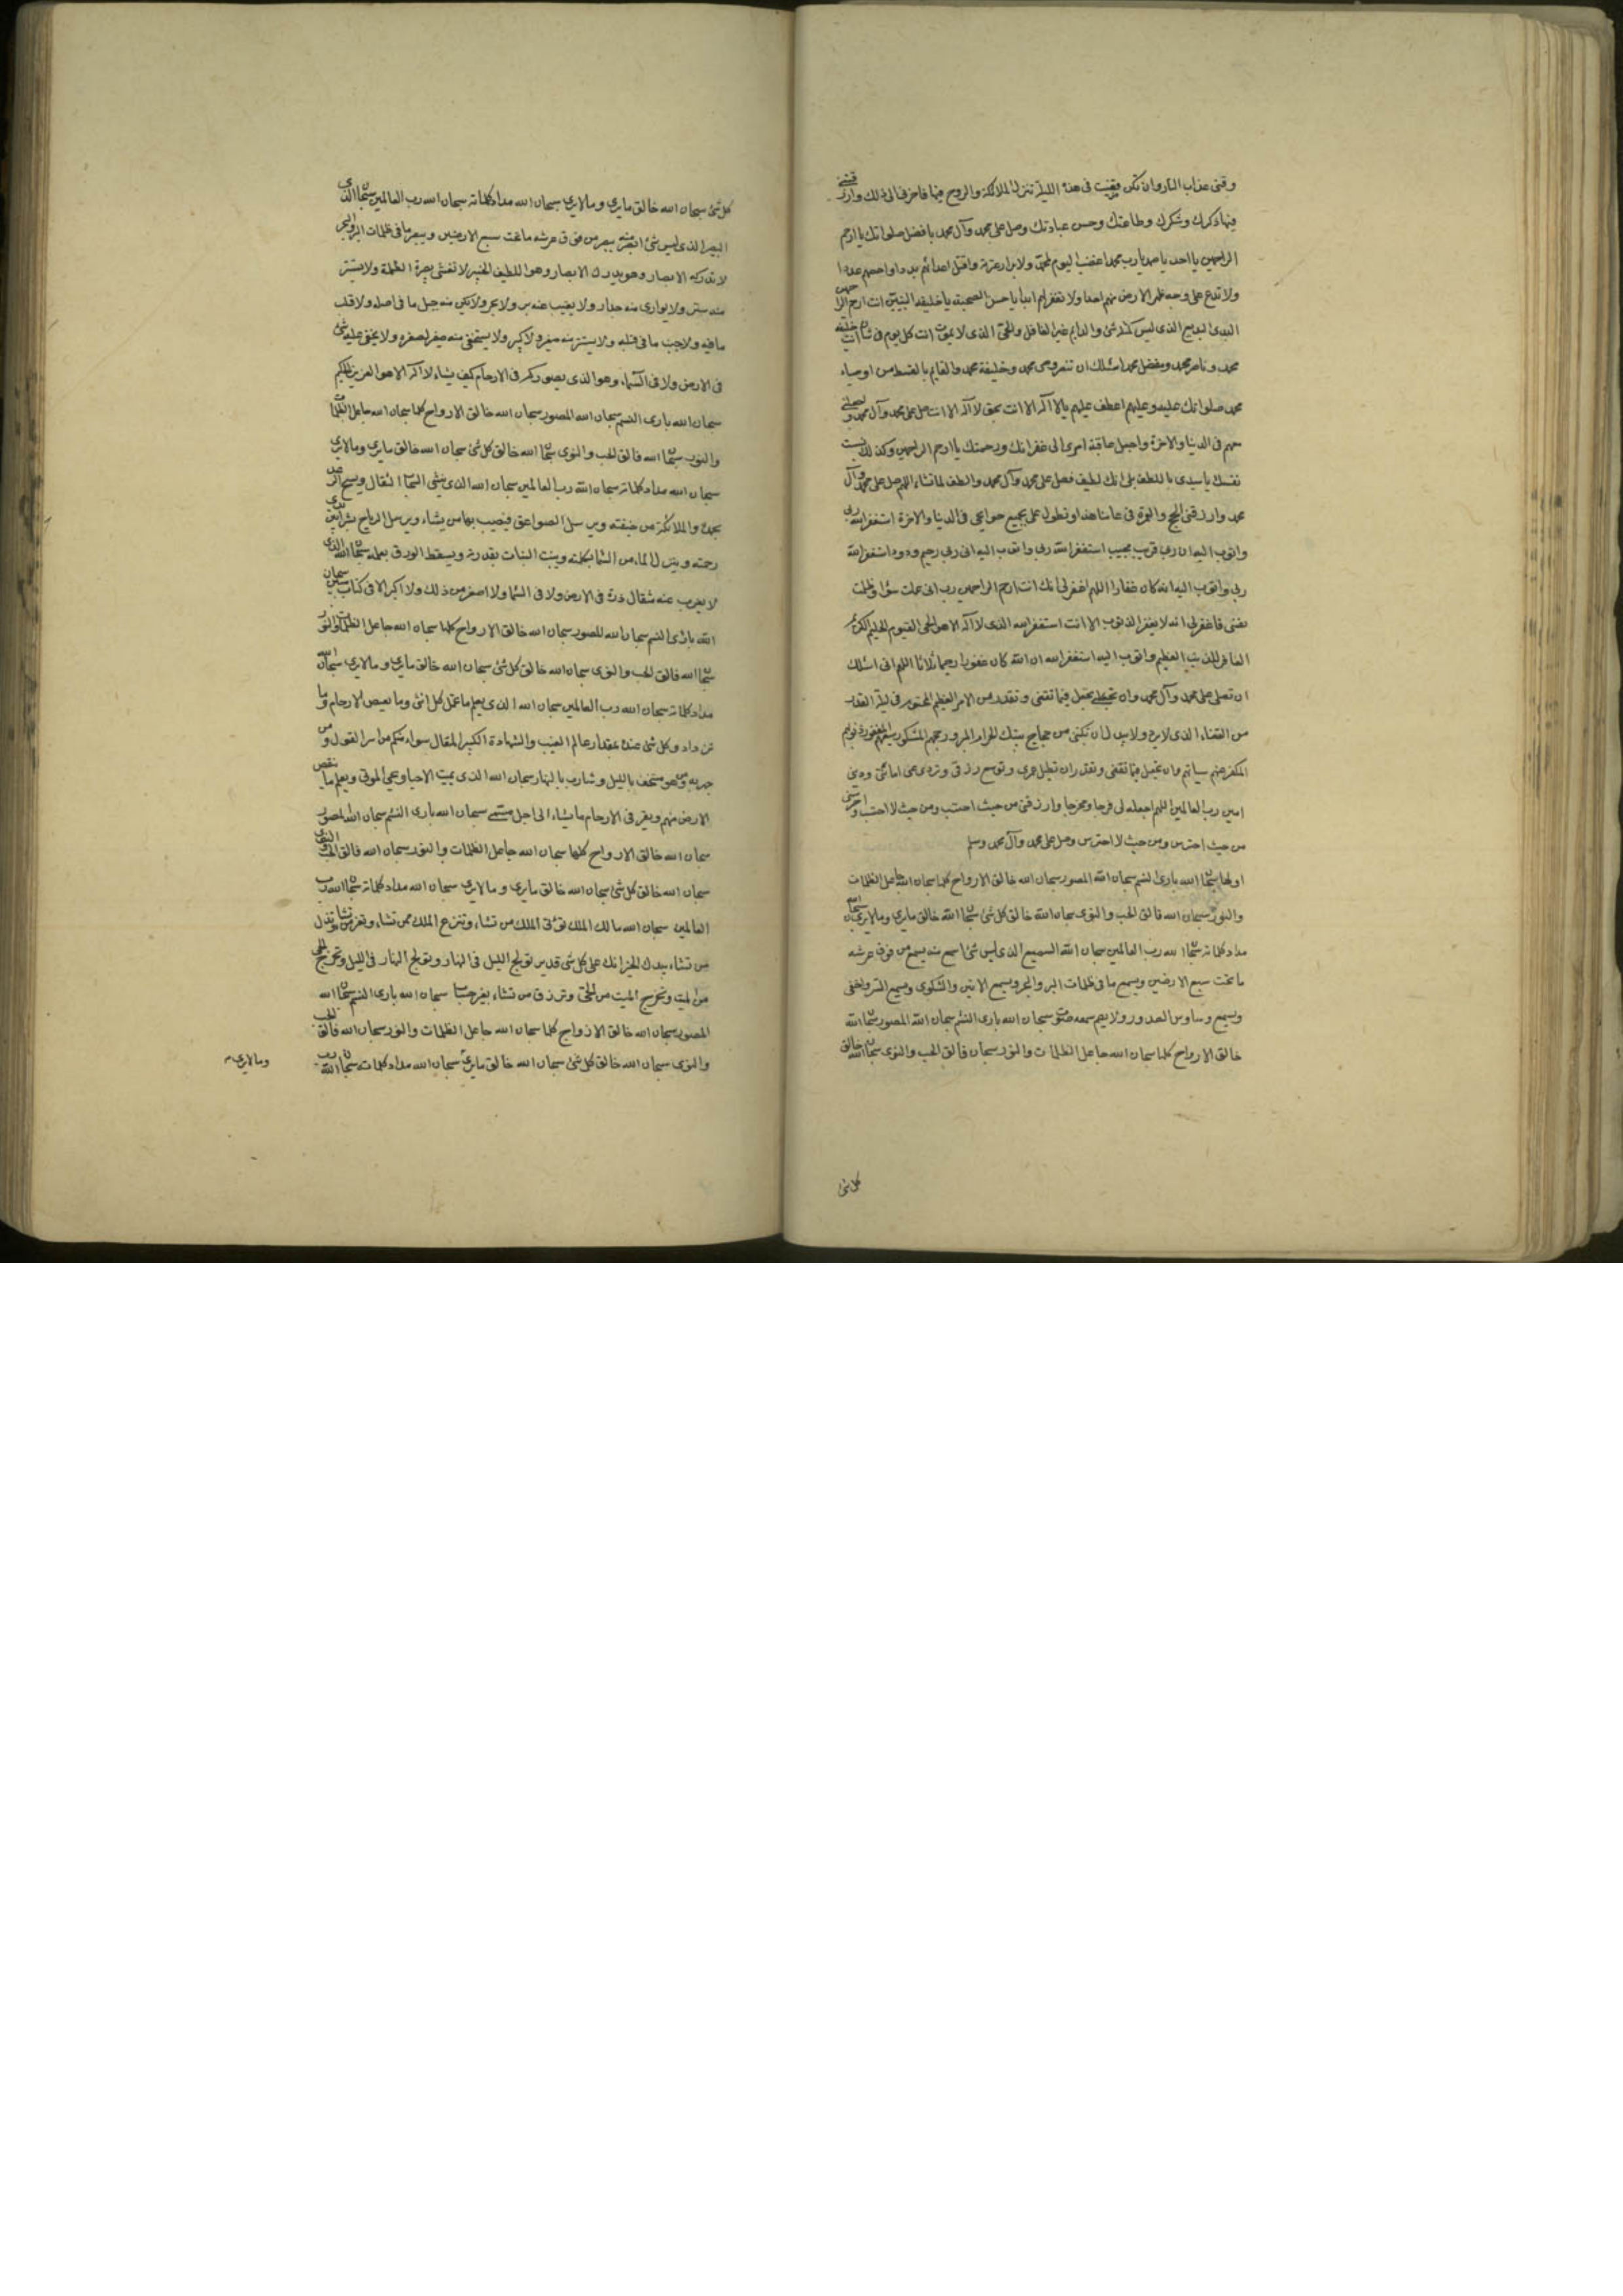 وقنى عذاب النار وان تكن قضيت فى هذه الليلة تنزل الملائكة والروح فيها فاخرنى الى ذلك وارزقنى
فيها ذكرك وشكرك وطاعتك وحسن عبادتك وصل على محمد وآل محمد بافضل صلواتك يا ارحم
الراحمين يا احد يا صمد يا رب محمد اغضب اليوم لمحمد ولابرار عترته واقتل اعدائهم بددا واحصهم عددا
ولا تدع على وجه ظهر الارض منهم احدا ولا تغفر لهم ابدا يا حسن الصحبة يا خليفة النبيين انت ارحم الراحمين
البدئ البديع الذى ليس كمثله شئ والدايم غير الغافل والحى الذى لا يموت انت كل يوم فى شان انت خليفة
محمد وناصر محمد ومفضل محمد اسئلك ان تنصر وصى محمد وخليفة محمد والقايم بالقسط من اوصياء
محمد صلواتك عليه وعليهم اعطف عليهم يا لا اله الا انت بحق لا اله الا انت صل على محمد وآل محمد واجعلنى
معهم فى الدنيا والاخرة واجعل عاقبة امرى الى غفرانك ورحمتك يا ارحم الراحمين وكذلك نسبت
نفسك يا سيدى باللطف بلى انك لطيف فصل على محمد وآل محمد والطف لما تشاء اللهم صل على محمد وآل
محمد وارزقنى الحج والعمرة فى عامنا هذا وتطول على بجميع حوايجى فى الدنيا والاخرة استغفر الله ربى
واتوب اليه ان ربى قريب مجيب استغفر الله ربى واتوب اليه ان ربى رحيم ودود استغفر الله
ربى واتوب اليه انه كان غفارا اللهم اغفر لى انك انت ارحم الراحمين رب انى عملت سوءا وظلمت
نفسى فاغفر لى انه لا يغفر الذنوب الا انت استغفر الله الذى لا اله الا هو الحى القيوم الحليم الكريم
الغافر للذنب العظيم واتوب اليه استغفر الله ان الله كان غفورا رحيما ثلاثا اللهم انى اسئلك
ان تصلى على محمد وآل محمد وان تجعل فيما تقضى وتقدر من الامر العظيم المحتوم فى ليلة القدر
من القضاء الذى لا يرد ولا يبدل ان تكتبنى من حجاج بيتك الحرام المبرور حجهم المشكور سعيهم المغفور ذنوبهم
المكفر عنهم سيئاتهم وان تجعل فيما تقضى وتقدر ان تطيل عمرى وتوسع رزقى وتؤدى عنى امانتى ودينى
امين رب العالمين اللهم اجعل لى فرجا ومخرجا وارزقنى من حيث احتسب ومن حيث لا احتسب واحرسنى
من حيث احترس ومن حيث لا احترس وصل على محمد وآل محمد وسلم
اولها سبحان الله بارئ النسم سبحان الله المصور سبحان الله خالق الارواح كلها سبحان الله جاعل الظلمات
والنور سبحان الله فالق الحب والنوى سبحان الله خالق كل شئ سبحان الله خالق ما يرى وما لا يرى سبحان الله
مداد كلماته سبحان الله رب العالمين سبحان الله السميع الذى ليس شئ اسمع منه يسمع من فوق عرشه
ما تحت سبع الارضين ويسمع ما فى ظلمات البر والبحر ويسمع الانين والشكوى ويسمع السر واخفى
ويسمع وساوس الصدور ولا يصم سمعه صوت سبحان الله بارئ النسم سبحان الله المصور سبحان الله
خالق الارواح كلها سبحان الله جاعل الظلمات والنور سبحان فالق الحب والنوى سبحان الله خالق
كل شئ
كل شئ سبحان الله خالق ما يرى وما لا يرى سبحان الله مداد كلماته سبحان الله رب العالمين سبحان الله الذى
البصير الذى ليس شئ ابصر منه يبصر من فوق عرشه ما تحت سبع الارضين ويبصر ما فى ظلمات البر والبحر
لا تدركه الابصار وهو يدرك الابصار وهو اللطيف الخبير لا تغشى بصره الظلمة ولا يستتر
منه بستر ولا يوارى منه جدار ولا يغيب عنه بر ولا بحر ولا يكن منه جبل ما فى اصله ولا قلب
ما فيه ولا جنب ما فى قلبه ولا يستتر منه صغير ولا كبير ولا يستخفى منه صغير لصغره ولا يخفى عليه شئ
فى الارض ولا فى السماء وهو الذى يصوركم فى الارحام كيف يشاء لا اله الا هو العزيز الحكيم
سبحان الله بارى النسم سبحان الله المصور سبحان الله خالق الارواح كلها سبحان الله جاعل الظلمات
والنور سبحان الله فالق الحب والنوى سبحان الله خالق كل شئ سبحان الله خالق ما يرى وما لا يرى
سبحان الله مداد كلماته سبحان الله رب العالمين سبحان الله الذى ينشئ السحاب الثقال ويسبح الرعد
بحمده والملائكة من خيفته ويرسل الصواعق فيصيب بها من يشاء ويرسل الرياح بشرا بين يدى
رحمته وينزل الماء من السماء بكلمته وينبت النبات بقدرته ويسقط الورق بعلمه سبحان الله الذى
لا يعزب عنه مثقال ذرة فى الارض ولا فى السماء ولا اصغر من ذلك ولا اكبر الا فى كتاب مبين سبحان
الله بارئ النسم سبحان الله المصور سبحان الله خالق الارواح كلها سبحان الله جاعل الظلمات والنور
سبحان الله فالق الحب والنوى سبحان الله خالق كل شئ سبحان الله خالق ما يرى وما لا يرى سبحان الله
مداد كلماته سبحان الله رب العالمين سبحان الله الذى يعلم ما تحمل كل انثى وما تغيض الارحام وما
تزداد وكل شئ عنده بمقدار عالم الغيب والشهادة الكبير المتعال سواء منكم من اسر القول ومن
جهر به ومن هو مستخف بالليل وسارب بالنهار سبحان الله الذى يميت الاحياء ويحيى الموتى ويعلم ما تنقص
الارض منهم ويقر فى الارحام ما يشاء الى اجل مسمى سبحان الله بارى النسم سبحان الله المصور
سبحان الله خالق الارواح كلها سبحان الله جاعل الظلمات والنور سبحان الله فالق الحب والنوى
سبحان الله خالق كل شئ سبحان الله خالق ما يرى وما لا يرى سبحان الله مداد كلماته سبحان الله رب
العالمين سبحان الله مالك الملك تؤتى الملك من تشاء وتنزع الملك ممن تشاء وتعز من تشاء وتذل
من تشاء بيدك الخير انك على كل شئ قدير تولج الليل فى النهار وتولج النهار فى الليل وتخرج الحى
من الميت وتخرج الميت من الحى وترزق من تشاء بغير حساب سبحان الله بارى النسم سبحان الله
المصور سبحان الله خالق الازواج كلها سبحان الله جاعل الظلمات والنور سبحان الله فالق الحب
والنوى سبحان الله خالق كل شئ سبحان الله خالق ما يرى سبحان الله مداد كلماته سبحان الله رب
وما لا يرى